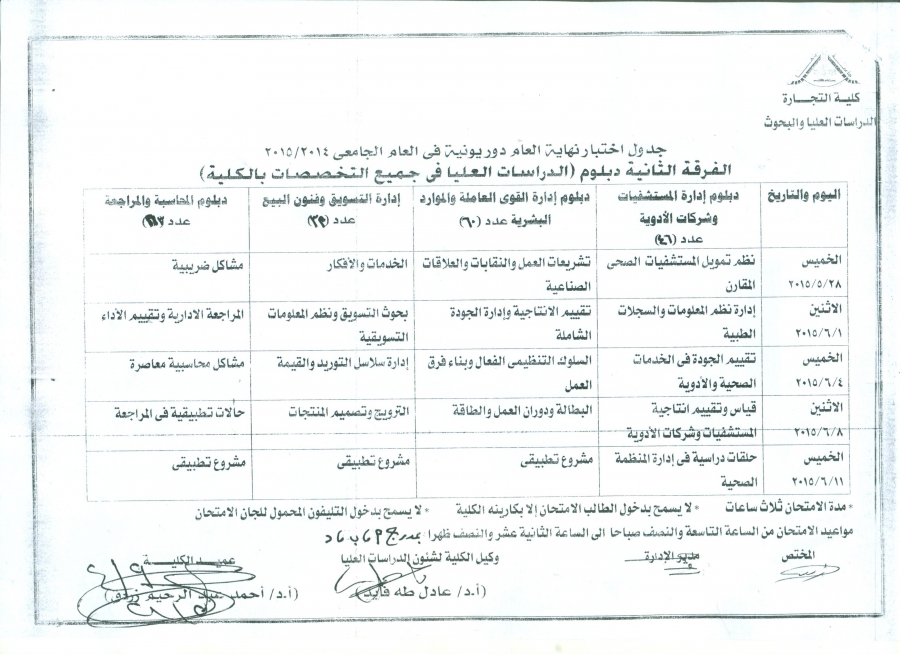 كلية التجارة
الدراسات العليا والبحوث
جدول اختبار نهاية العام دور يونية فى العام الجامعى ٢٠١٥/٢٠١٤
الفرقة الثانية دبلوم (الدراسات العليا فى جميع التخصصات بالكلية)
اليوم والتاريخ
دبلوم إدارة المستشفيات
وشركات الأدوية
عدد (٤٦)
دبلوم إدارة القوى العاملة والموارد
البشرية عدد (٦٠)
إدارة التسويق وفنون البيع
عدد
دبلوم المحاسبة والمراجعة
عدد
الخميس
٢٠١٥/٥/٢٨
نظم تمويل المستشفيات الصحى
المقارن
تشريعات العمل والنقابات والعلاقات
الصناعية
الخدمات والأفكار
مشاكل ضريبية
الاثنين
٢٠١٥/٦/١
إدارة نظم المعلومات والسجلات
الطبية
تقييم الانتاجية وإدارة الجودة
الشاملة
بحوث التسويق ونظم المعلومات
التسويقية
المراجعة الادارية وتقييم الأداء
الخميس
٢٠١٥/٦/٤
تقييم الجودة فى الخدمات
الصحية والأدوية
السلوك التنظيمى الفعال وبناء فرق
العمل
إدارة سلاسل التوريد والقيمة
مشاكل محاسبية معاصرة
الاثنين
٢٠١٥/٦/٨
قياس وتقييم انتاجية
المستشفيات وشركات الأدوية
البطالة ودوران العمل والطاقة
الترويج وتصميم المنتجات
حالات تطبيقية فى المراجعة
الخميس
٢٠١٥/٦/١١
حلقات دراسية فى إدارة المنظمة
الصحية
مشروع تطبيقى
مشروع تطبيقى
مشروع تطبيقى
* مدة الامتحان ثلاث ساعات * لا يسمح بدخول الطالب الامتحان إلا بكارنيه الكلية * لا يسمح بدخول التليفون المحمول للجان الامتحان
مواعيد الامتحان من الساعة التاسعة والنصف صباحا الى الساعة الثانية عشر والنصف ظهرا
المختص
مدير الإدارة
وكيل الكلية لشئون الدراسات العليا
عميد الكلية
(أ.د/ عادل طه فايد)
(أ.د/ أحمد عبد الرحيم زردق)